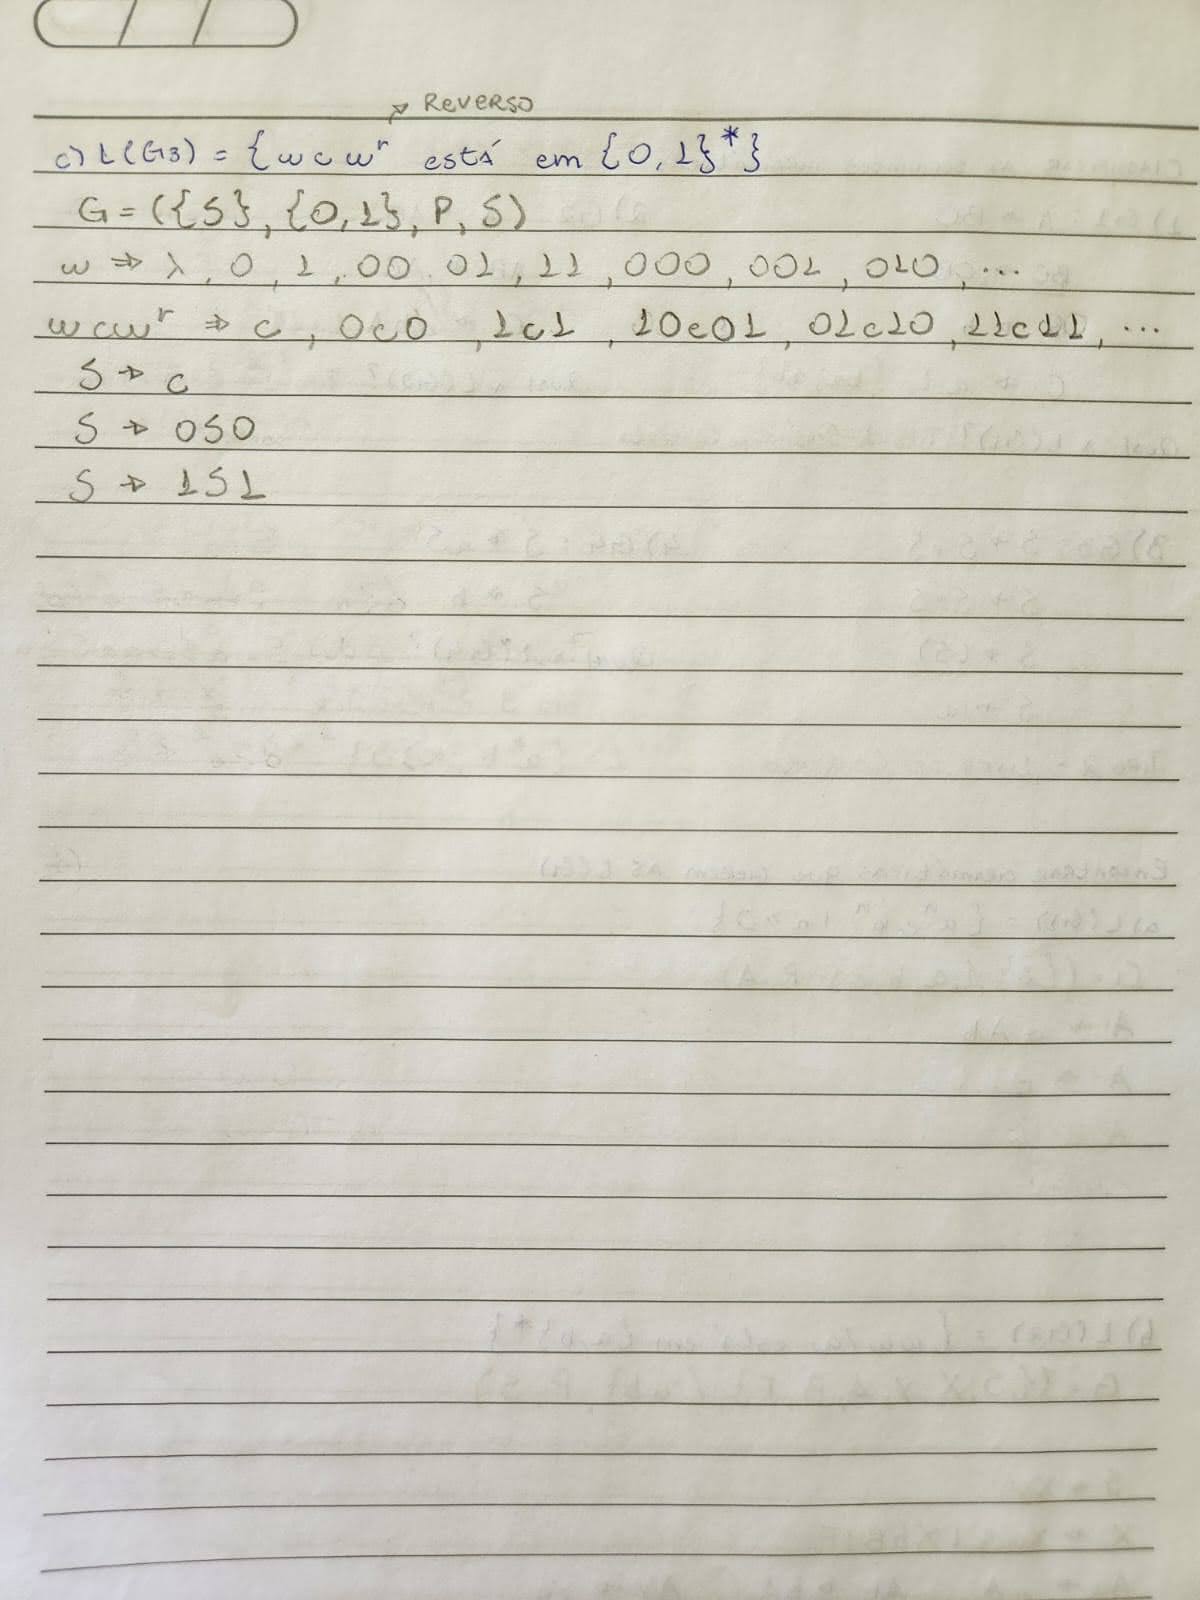 REVERSO
c) L(G3) = {wcwʳ está em {0,1}*}
G = ({S}, {0,1}, P, S)
w ⇒ λ, 0, 1, 00, 01, 11, 000, 001, 010, ...
wcwʳ ⇒ c, 0c0, 1c1, 10c01, 01c10, 11c11, ...
S → c
S → 0S0
S → 1S1